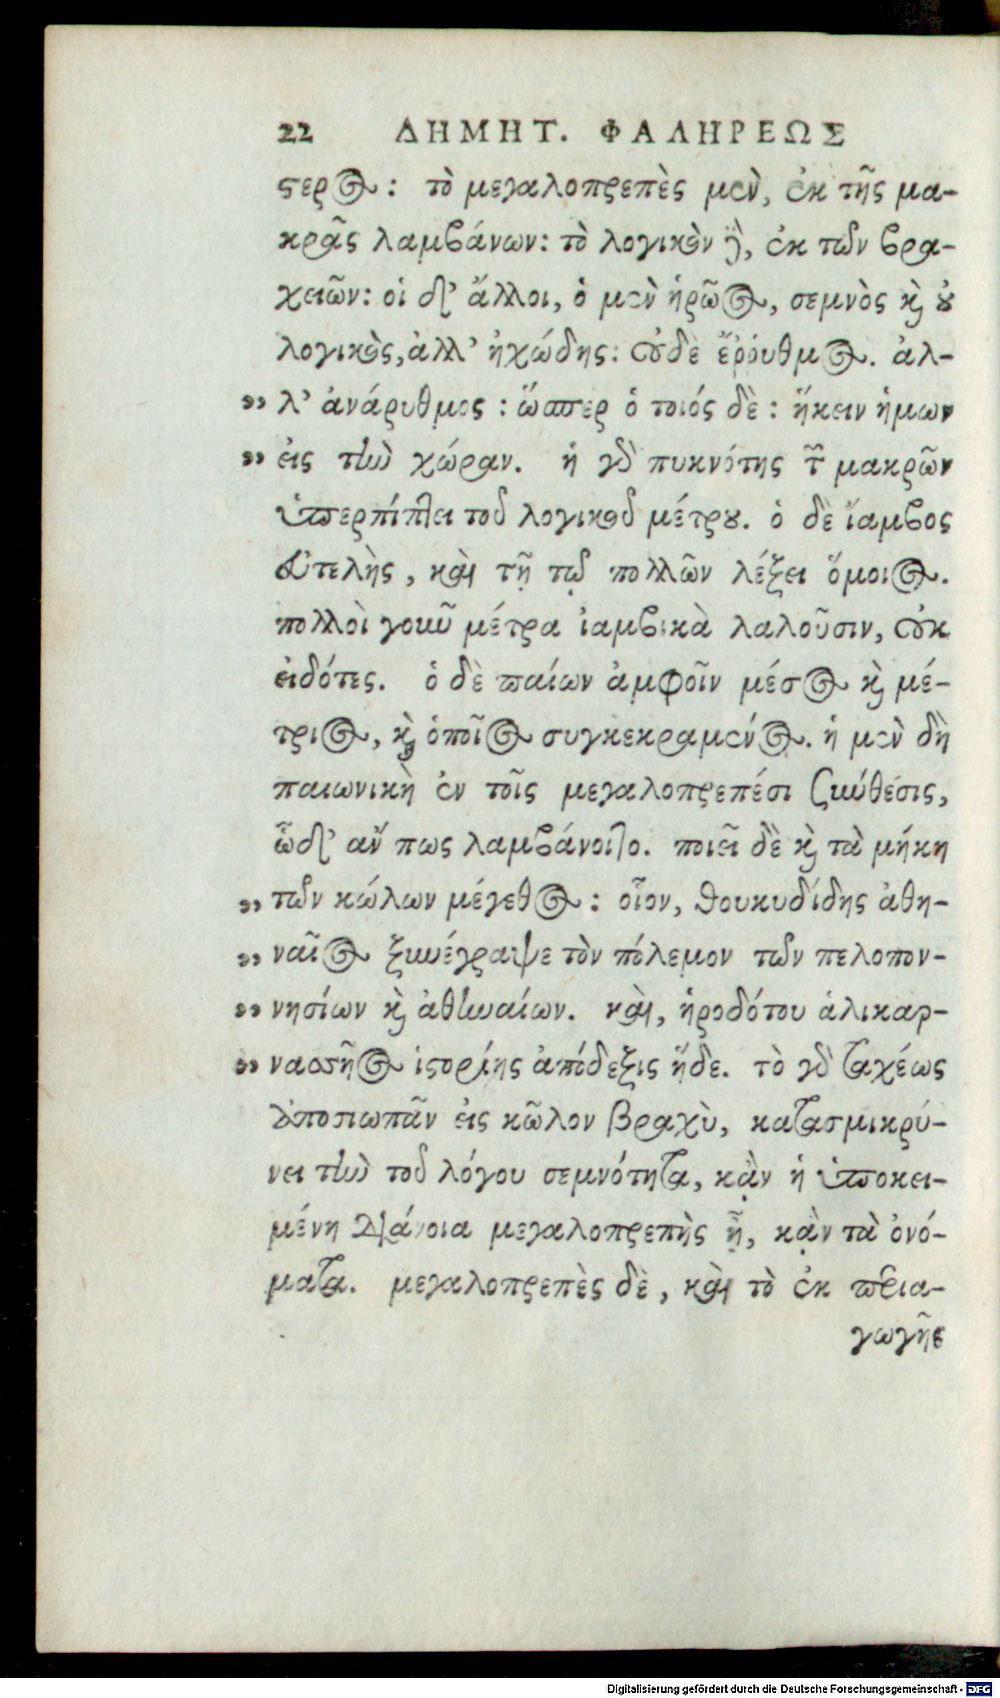 22 ΔΗΜΗΤ. ΦΑΛΗΡΕΩΣ
ϛερος: τὸ μεγαλοπρεπὲς μὲν, ἐκ τῆς μα-
κρᾶς λαμβάνων: τὸ λογικὸν δὲ, ἐκ τῶν βρα-
χειῶν: οἱ δ' ἄλλοι, ὁ μὲν ἡρῶος, σεμνὸς καὶ οὐ
λογικὸς, ἀλλ' ἠχώδης: οὐδὲ ἔῤῥυθμος. ἀλ-
„ λ' ἀνάρυθμος: ὥσπερ ὁ τοιός δὲ: ἥκειν ἡμων
„ εἰς τὴν χώραν. ἡ γὰρ πυκνότης τῶν μακρῶν
ὑπερπίπτει τοῦ λογικοῦ μέτρου. ὁ δὲ ἴαμβος
εὐτελὴς, καὶ τῇ τῶν πολλῶν λέξει ὅμοιος.
πολλοὶ γοῦν μέτρα ἰαμβικὰ λαλοῦσιν, οὐκ
εἰδότες. ὁ δὲ παίων ἀμφοῖν μέσος καὶ μέ-
τριος, καὶ ὁποῖος συγκεκραμένος. ἡ μὲν δὴ
παιωνικὴ ἐν τοῖς μεγαλοπρεπέσι σύνθεσις,
ὧδ' ἄν πως λαμβάνοιτο. ποιεῖ δὲ καὶ τὰ μήκη
„ τῶν κώλων μέγεθος: οἷον, θουκυδίδης ἀθη-
„ ναῖος ξυνέγραψε τὸν πόλεμον τῶν πελοπον-
„ νησίων καὶ ἀθηναίων. καὶ, ἡροδότου ἁλικαρ-
„ νασσῆος ἱϛορίης ἀπόδεξις ἥδε. τὸ γὰρ ταχέως
ἀποσιωπᾶν εἰς κῶλον βραχὺ, κατασμικρύ-
νει τὴν τοῦ λόγου σεμνότητα, κᾂν ἡ ὑποκει-
μένη διάνοια μεγαλοπρεπὴς ᾖ, κᾂν τὰ ὀνό-
ματα. μεγαλοπρεπὲς δὲ, καὶ τὸ ἐκ περια-
γωγῆς
Digitalisierung gefördert durch die Deutsche Forschungsgemeinschaft - DFG